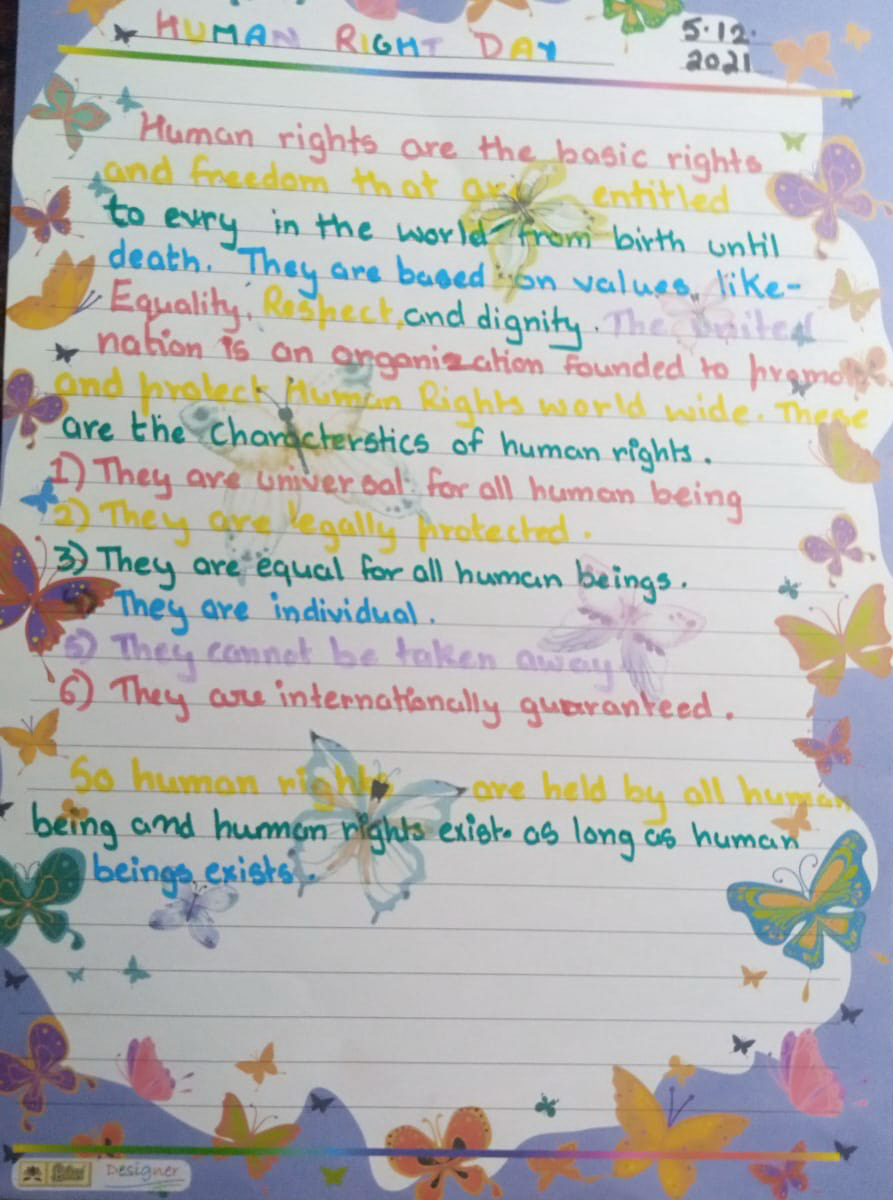 HUMAN RIGHT DAY
5.12.
2021
Human rights are the basic rights
and freedom that are entitled
to evry in the world from birth until
death. They are based on values like-
Equality, Respect, and dignity. The United
nation is an organization founded to promote
and protect Human Rights world wide. These
are the characterstics of human rights.
1) They are universal for all human being
2) They are legally protected.
3) They are equal for all human beings.
4) They are individual.
5) They cannot be taken away
6) They are internationally guaranteed.
So human rights are held by all human
being and human rights exist as long as human
beings exists.
Designer